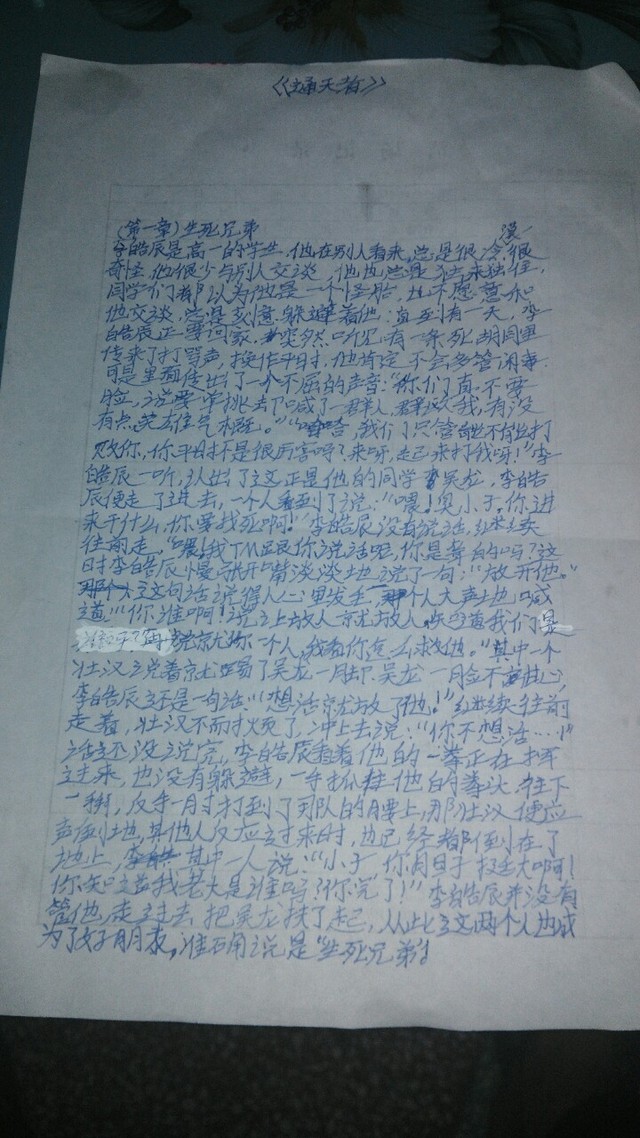 《通天者》
(第一章)生死兄弟
没
李皓辰是高一的学生,他在别人看来,总是很冷,很
奇怪,他很少与别人交谈,他也总是独来独往,
同学们都认为他是一个怪胎,也不愿意和
他交谈,总是刻意躲避着他;直到有一天,李
皓辰正要回家,突然听见有一条死胡同里
传来了打骂声,换作平时,他肯定不会多管闲事
可是里面传出了一个不屈的声音:“你们真不要
脸,说要单挑去喊了一群人,群殴我,有没
有点英雄气概。”“哈哈,我们只管打
败你,你平时不是很厉害吗?来呀,起来打我呀!”李
皓辰一听,认出了这正是他的同学吴龙,李皓
辰便走了进去,一个人看到了说:“喂!臭小子,你进
来干什么,你要找死啊!”李皓辰没有说话,继续
往前走,“喂!我TM跟你说话呢,你是聋的吗?这
时李皓辰慢慢张开嘴淡淡地说了一句:“放开他。”
这句话说得人心里发生 那个人大声地喊
道:“你谁啊!说让放人就放人,知道我们是
谁吗? 就你一个人,我看你怎么救他。”其中一个
壮汉说着就踢了吴龙一脚,吴龙一脸不甘心,
李皓辰还是一句话:“想活就放了他!”继续往前
走着,壮汉不耐烦了,冲上去说:“你不想活…!”
话还没说完,李皓辰看着他的一拳正在挥
过来,也没有躲避,一手抓住他的拳头,往下
一掰,反手一肘打到了那队的腰上,那壮汉便应
声倒地,其他人反应过来时,也已经都倒在了
地上,其中一人说:“小子你胆子挺大啊!
你知道我老大是谁吗?你完了!”李皓辰并没有
管他,走过去把吴龙扶了起,从此这两个人也成
为了好朋友,准确说是“生死兄弟”